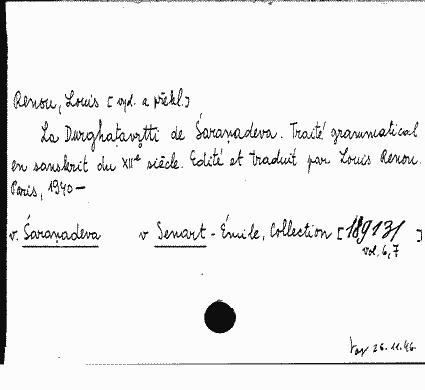 Renou, Louis [vyd. a překl.]
La Durghaṭavṛtti de Śaraṇadeva. Traité grammatical
en sanskrit du XIIe siècle. Edité et traduit par Louis Renou.
Paris, 1940—
v. Śaraṇadeva v Senart - Émile, Collection [189131]
vol. 6, 7
26.11.46.